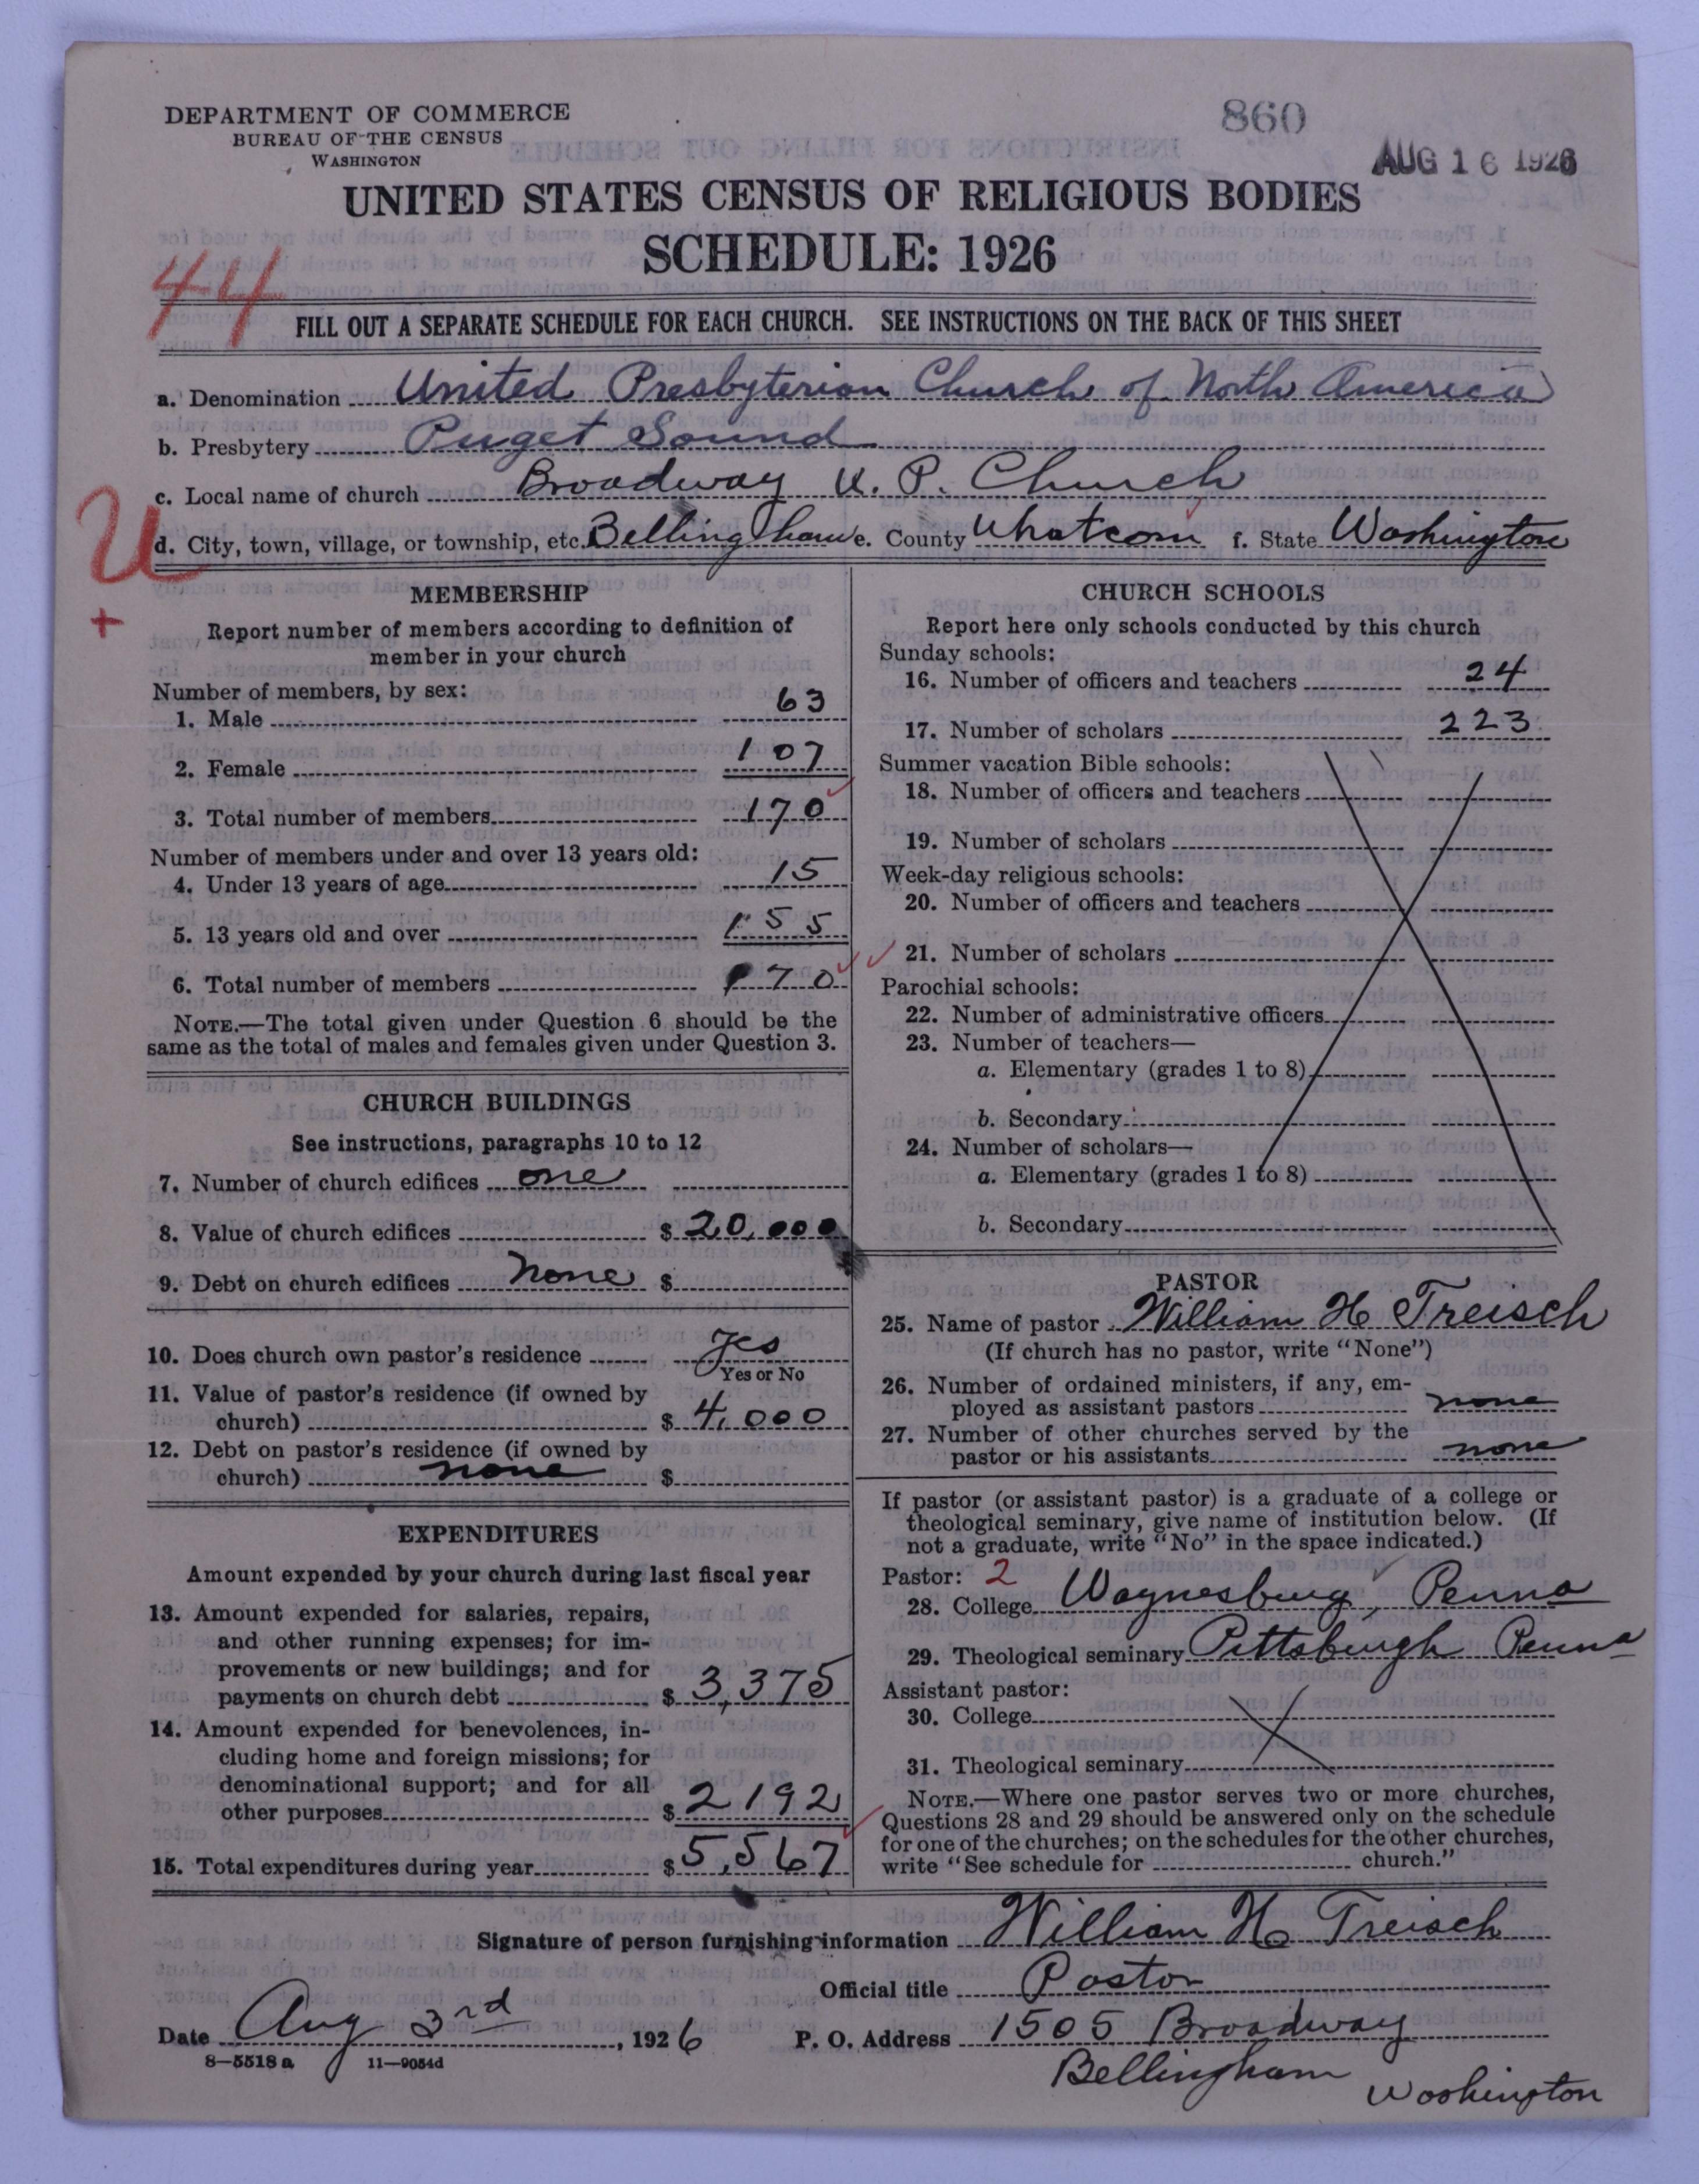 DEPARTMENT OF COMMERCE
BUREAU OF THE CENSUS
WASHINGTON
860
AUG 16 1926
UNITED STATES CENSUS OF RELIGIOUS BODIES
SCHEDULE: 1926
44
FILL OUT A SEPARATE SCHEDULE FOR EACH CHURCH. SEE INSTRUCTIONS ON THE BACK OF THIS SHEET
a. Denomination United Presbyterian Church of North America
b. Presbytery Puget Sound
c. Local name of church Broadway U. P. Church
U
d. City, town, village, or township, etc. Bellingham e. County Whatcom f. State Washington
+
MEMBERSHIP
Report number of members according to definition of
member in your church
Number of members, by sex:
1. Male 63
2. Female 107
3. Total number of members 170
Number of members under and over 13 years old:
4. Under 13 years of age 15
5. 13 years old and over 155
6. Total number of members 170
NOTE.—The total given under Question 6 should be the
same as the total of males and females given under Question 3.
CHURCH BUILDINGS
See instructions, paragraphs 10 to 12
7. Number of church edifices one
8. Value of church edifices $ 20,000
9. Debt on church edifices none $
10. Does church own pastor's residence Yes
Yes or No
11. Value of pastor's residence (if owned by
church) $ 4,000
12. Debt on pastor's residence (if owned by
church) none $
EXPENDITURES
Amount expended by your church during last fiscal year
13. Amount expended for salaries, repairs,
and other running expenses; for im-
provements or new buildings; and for
payments on church debt $ 3,375
14. Amount expended for benevolences, in-
cluding home and foreign missions; for
denominational support; and for all
other purposes $ 2192
15. Total expenditures during year $ 5,567
CHURCH SCHOOLS
Report here only schools conducted by this church
Sunday schools:
16. Number of officers and teachers 24
17. Number of scholars 223
Summer vacation Bible schools:
18. Number of officers and teachers
19. Number of scholars
Week-day religious schools:
20. Number of officers and teachers
21. Number of scholars
Parochial schools:
22. Number of administrative officers
23. Number of teachers—
a. Elementary (grades 1 to 8)
b. Secondary
24. Number of scholars—
a. Elementary (grades 1 to 8)
b. Secondary
PASTOR
25. Name of pastor William H Treisch
(If church has no pastor, write "None")
26. Number of ordained ministers, if any, em-
ployed as assistant pastors none
27. Number of other churches served by the
pastor or his assistants none
If pastor (or assistant pastor) is a graduate of a college or
theological seminary, give name of institution below. (If
not a graduate, write "No" in the space indicated.)
Pastor: 2
28. College Waynesburg, Penna
29. Theological seminary Pittsburgh Penna
Assistant pastor:
30. College
31. Theological seminary
NOTE.—Where one pastor serves two or more churches,
Questions 28 and 29 should be answered only on the schedule
for one of the churches; on the schedules for the other churches,
write "See schedule for church."
Signature of person furnishing information William H Treisch
Official title Pastor
Date Aug 3rd, 1926 P. O. Address 1505 Broadway
8—5518 a 11—9054d
Bellingham Washington